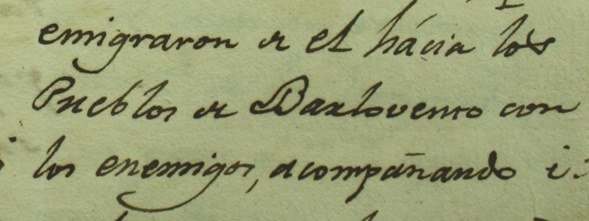 emigraron de el hácia los
Pueblos de Barlovento con
los enemigos, acompañando